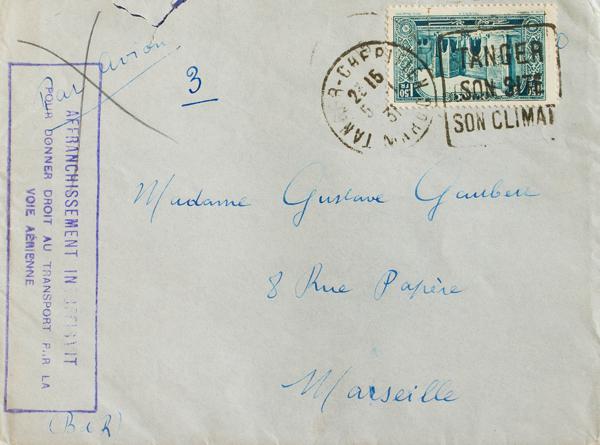 Par avion
3
TANGER-CHERIFIEN
24 15
5 31
MAROC
1F50
TANGER
SON SITE
SON CLIMAT
AFFRANCHISSEMENT INSUFFISANT
POUR DONNER DROIT AU TRANSPORT PAR LA
VOIE AÉRIENNE
Madame Gustave Gaubert
8 Rue Papère
Marseille
(B d R)